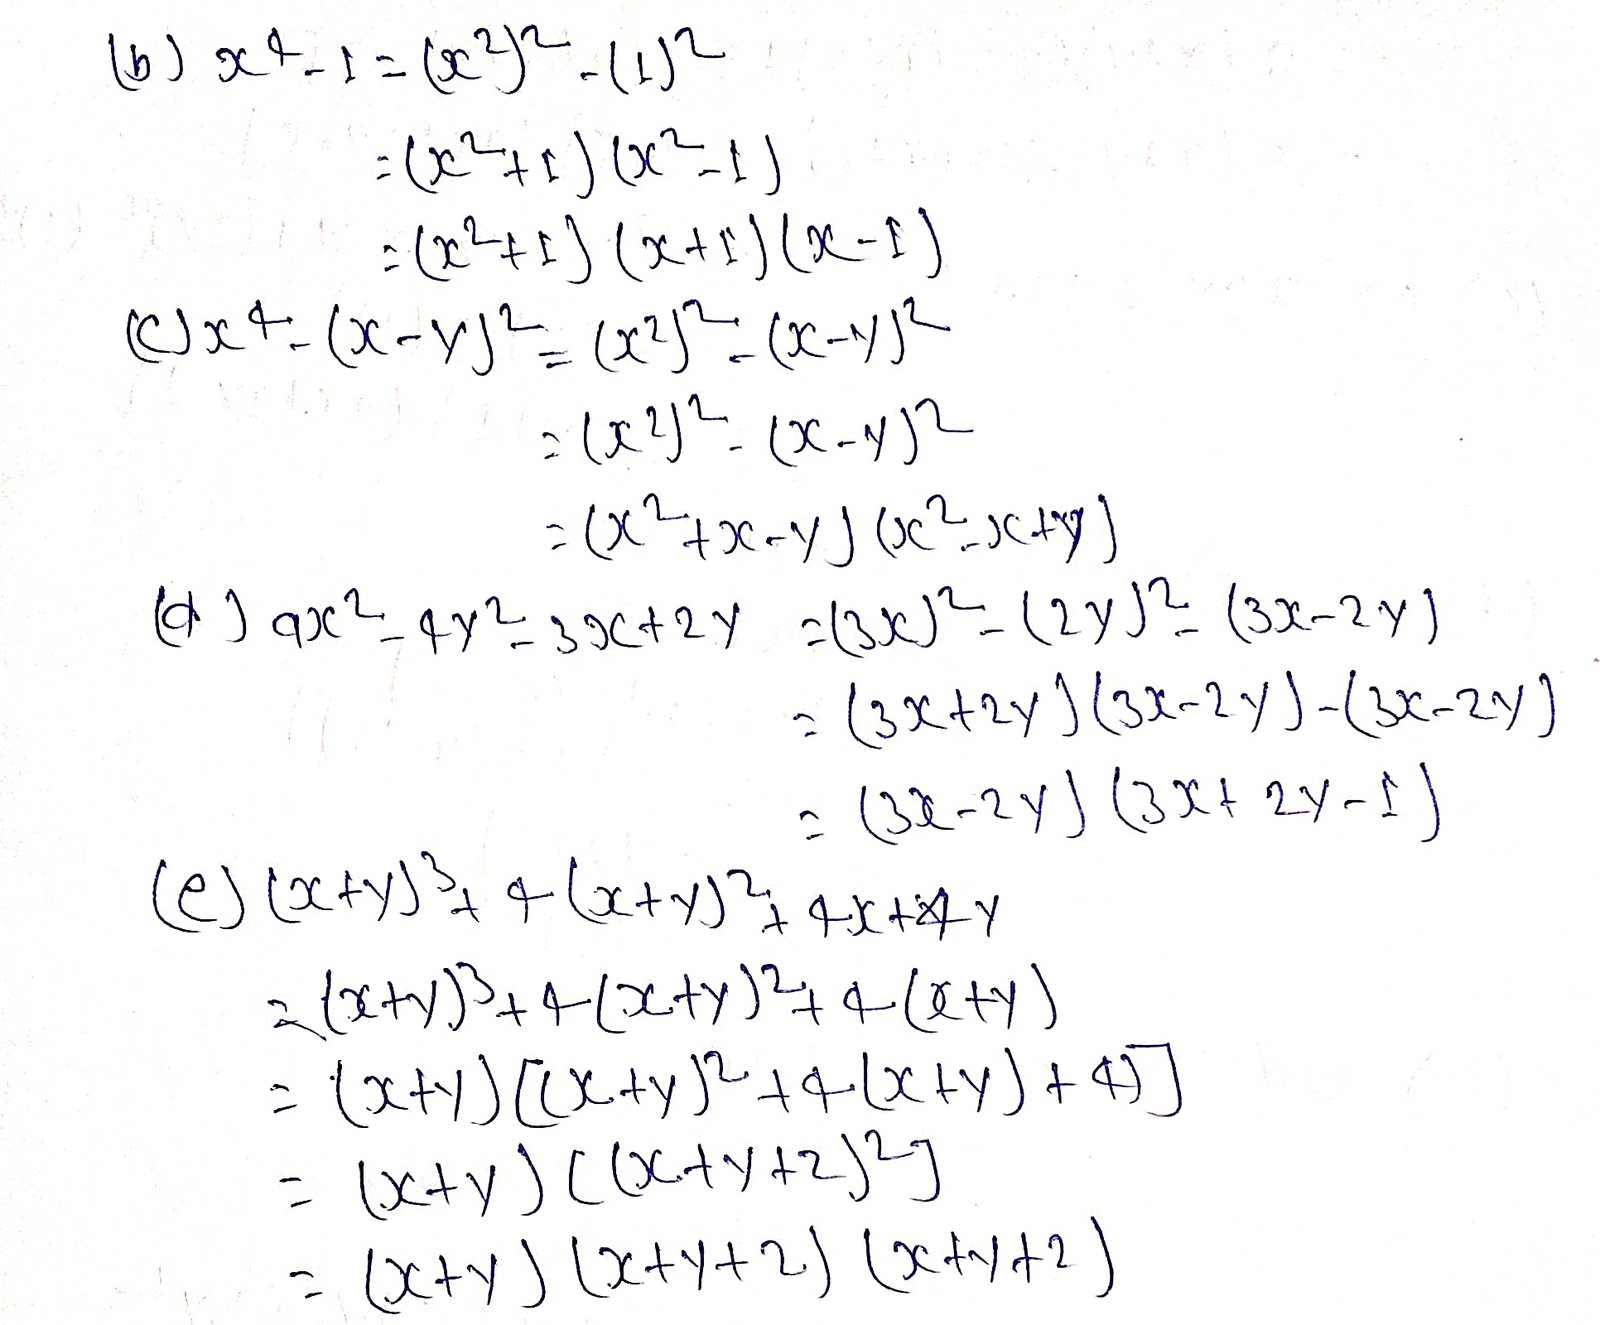 (b) x⁴ - 1 = (x²)² - (1)²
= (x² + 1) (x² - 1)
= (x² + 1) (x + 1) (x - 1)
(c) x⁴ - (x - y)² = (x²)² - (x - y)²
= (x²)² - (x - y)²
= (x² + x - y) (x² - x + y)
(d) 9x² - 4y² - 3x + 2y = (3x)² - (2y)² - (3x - 2y)
= (3x + 2y) (3x - 2y) - (3x - 2y)
= (3x - 2y) (3x + 2y - 1)
(e) (x + y)³ + 4(x + y)² + 4x + 4y
= (x + y)³ + 4(x + y)² + 4(x + y)
= (x + y) [(x + y)² + 4(x + y) + 4)]
= (x + y) [(x + y + 2)²]
= (x + y) (x + y + 2) (x + y + 2)